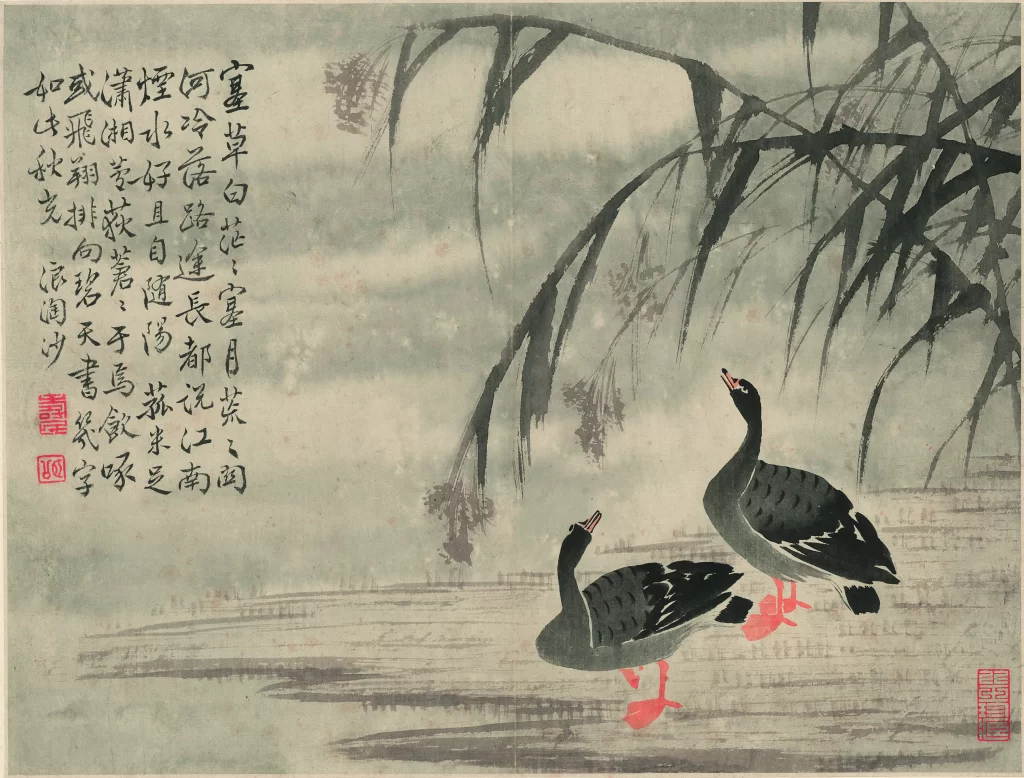 塞草白茫〻塞月荒〻関
河冷落路途長都说江南
煙水好且自随陽菰米足
瀟湘葦荻蒼〻于焉飲啄
或飛翔排向碧天書幾字
如此秋光 浪淘沙